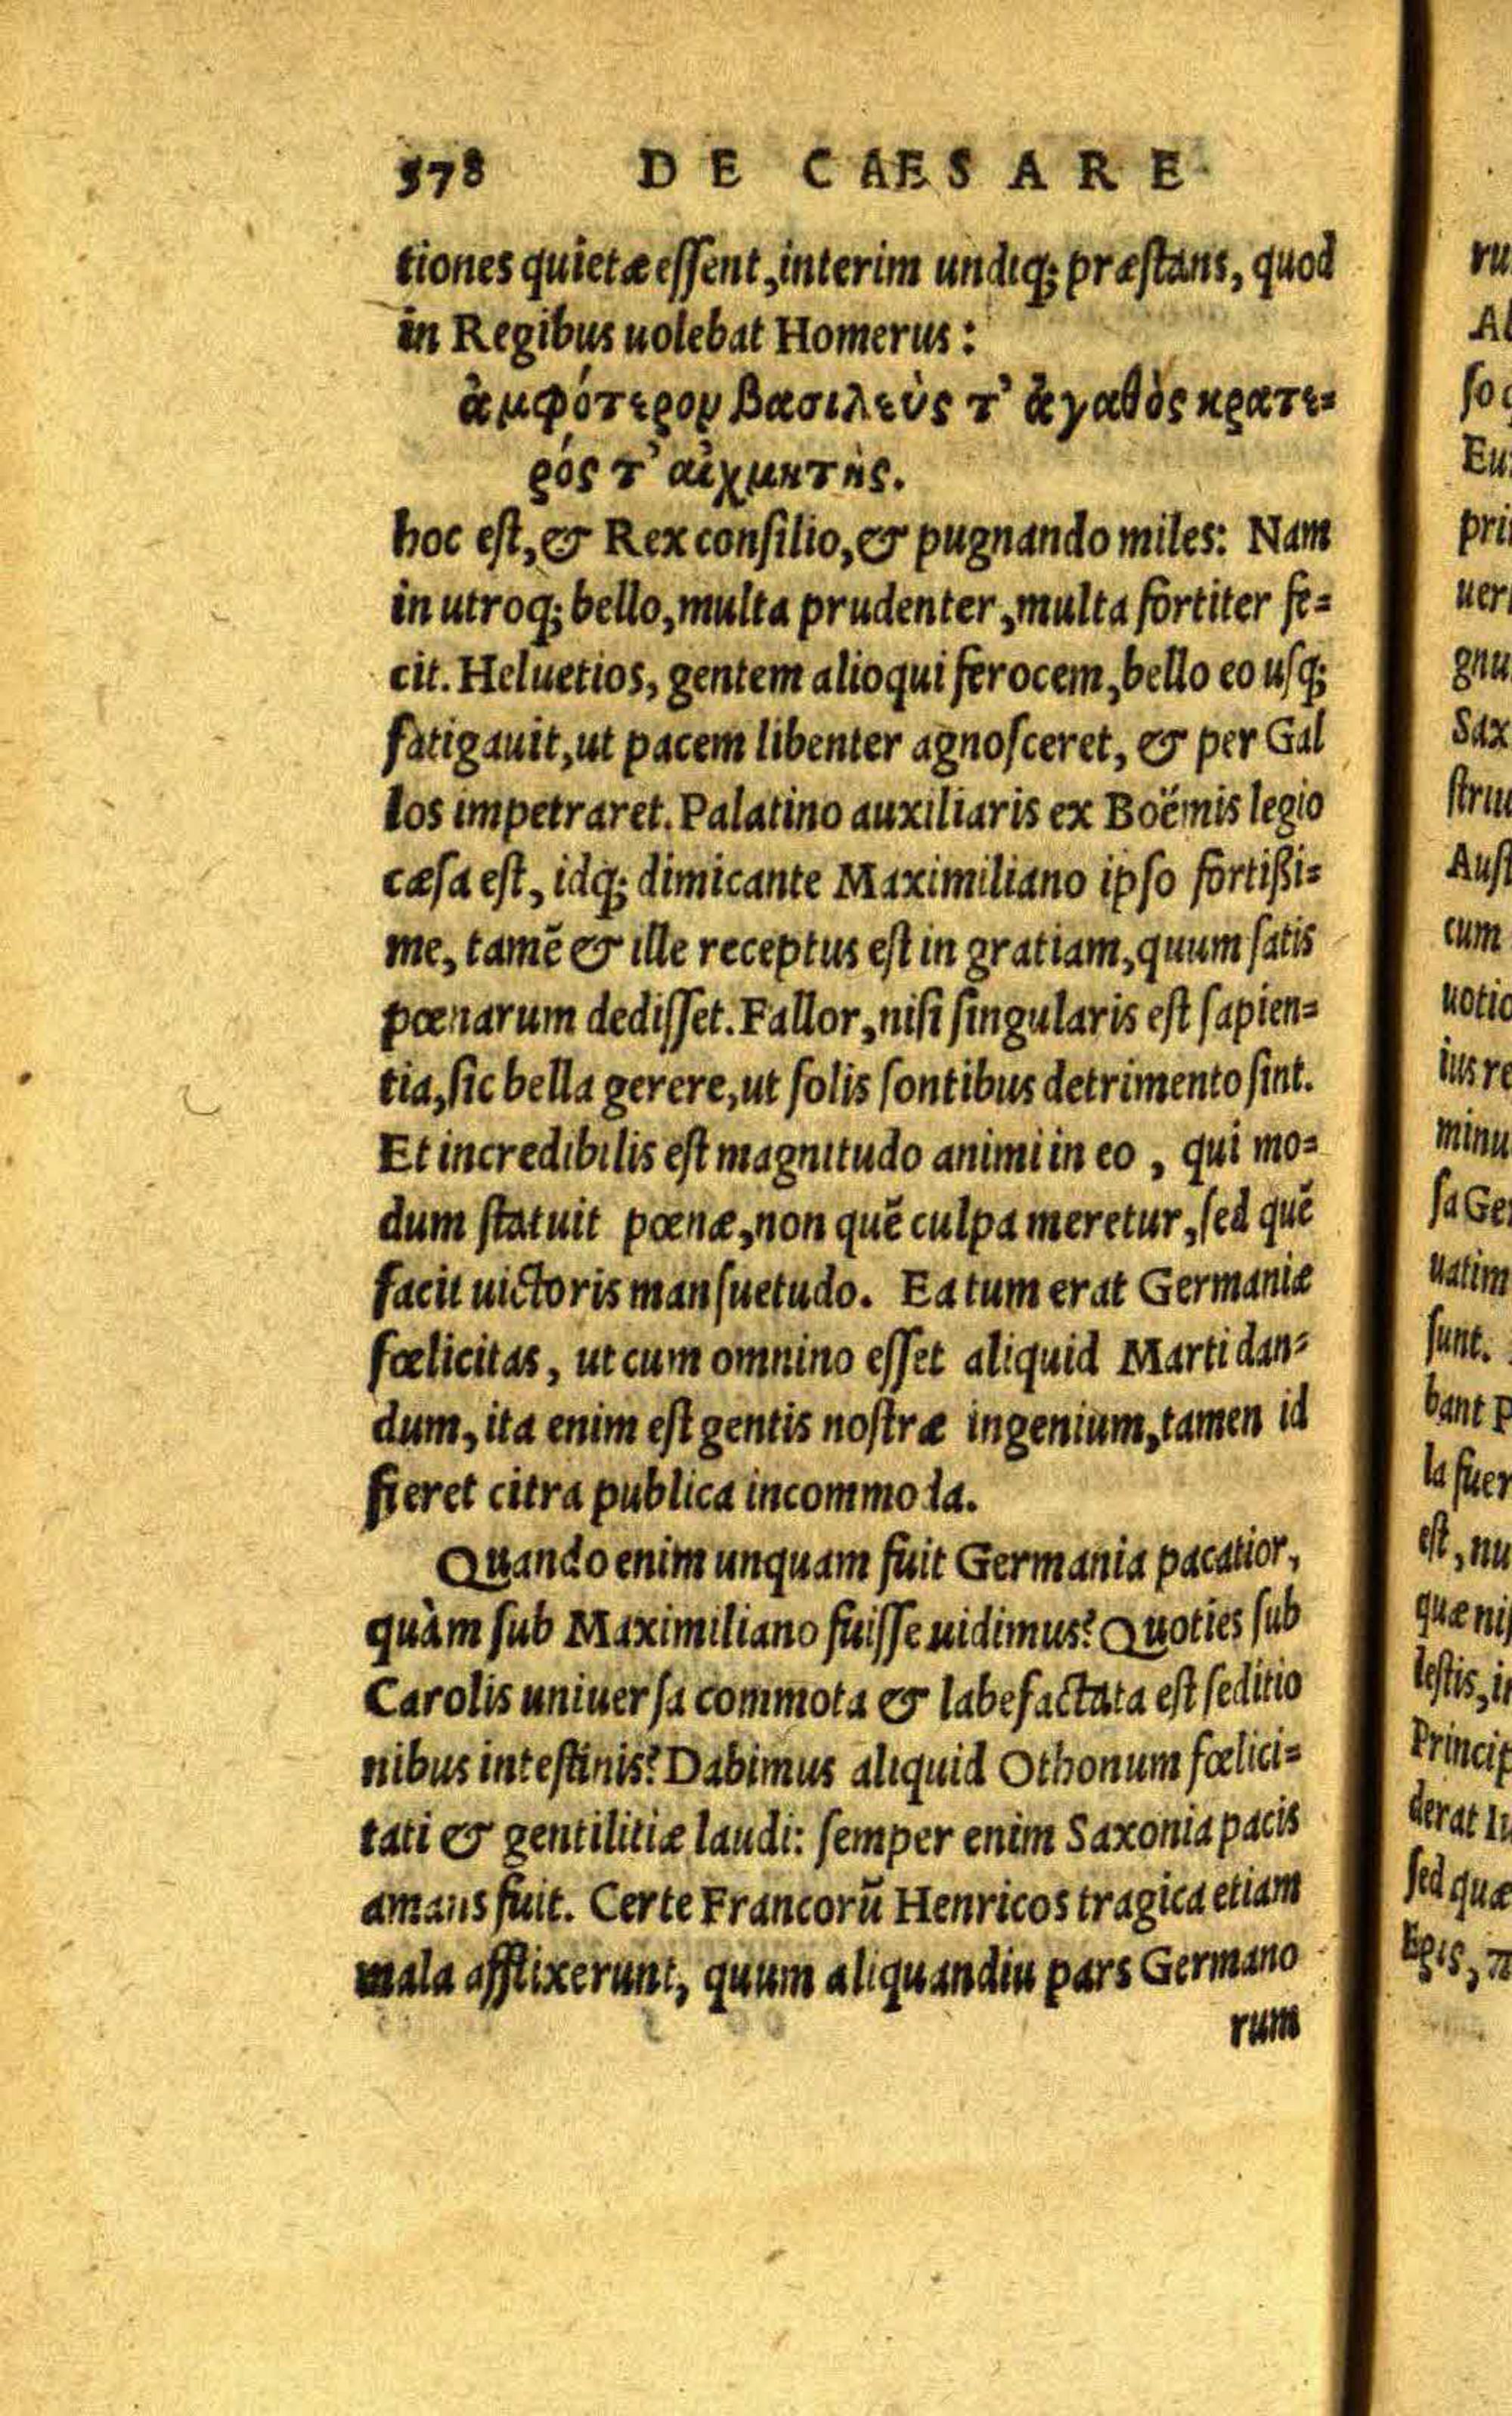 578 DE CAESARE
tiones quietæ essent, interim undiq; præstans, quod
in Regibus uolebat Homerus:
ἀμφότερον βασιλεὺς τ' ἀγαθὸς κρατε=
ρός τ' αἰχμητής.
hoc est, & Rex consilio, & pugnando miles: Nam
in utroq; bello, multa prudenter, multa fortiter fe=
cit. Heluetios, gentem alioqui ferocem, bello eo usq;
fatigauit, ut pacem libenter agnosceret, & per Gal
los impetraret. Palatino auxiliaris ex Boëmis legio
cæsa est, idq; dimicante Maximiliano ipso fortißi=
me, tamē & ille receptus est in gratiam, quum satis
pœnarum dedisset. Fallor, nisi singularis est sapien=
tia, sic bella gerere, ut solis sontibus detrimento sint.
Et incredibilis est magnitudo animi in eo, qui mo=
dum statuit pœnæ, non quē culpa meretur, sed quē
facit uictoris mansuetudo. Ea tum erat Germaniæ
fœlicitas, ut cum omnino esset aliquid Marti dan=
dum, ita enim est gentis nostræ ingenium, tamen id
fieret citra publica incommoda.
Quando enim unquam fuit Germania pacatior,
quàm sub Maximiliano fuisse uidimus? Quoties sub
Carolis uniuersa commota & labefactata est seditio
nibus intestinis? Dabimus aliquid Othonum fœlici=
tati & gentilitiæ laudi: semper enim Saxonia pacis
amans fuit. Certe Francorū Henricos tragica etiam
mala afflixerunt, quum aliquandiu pars Germano
rum